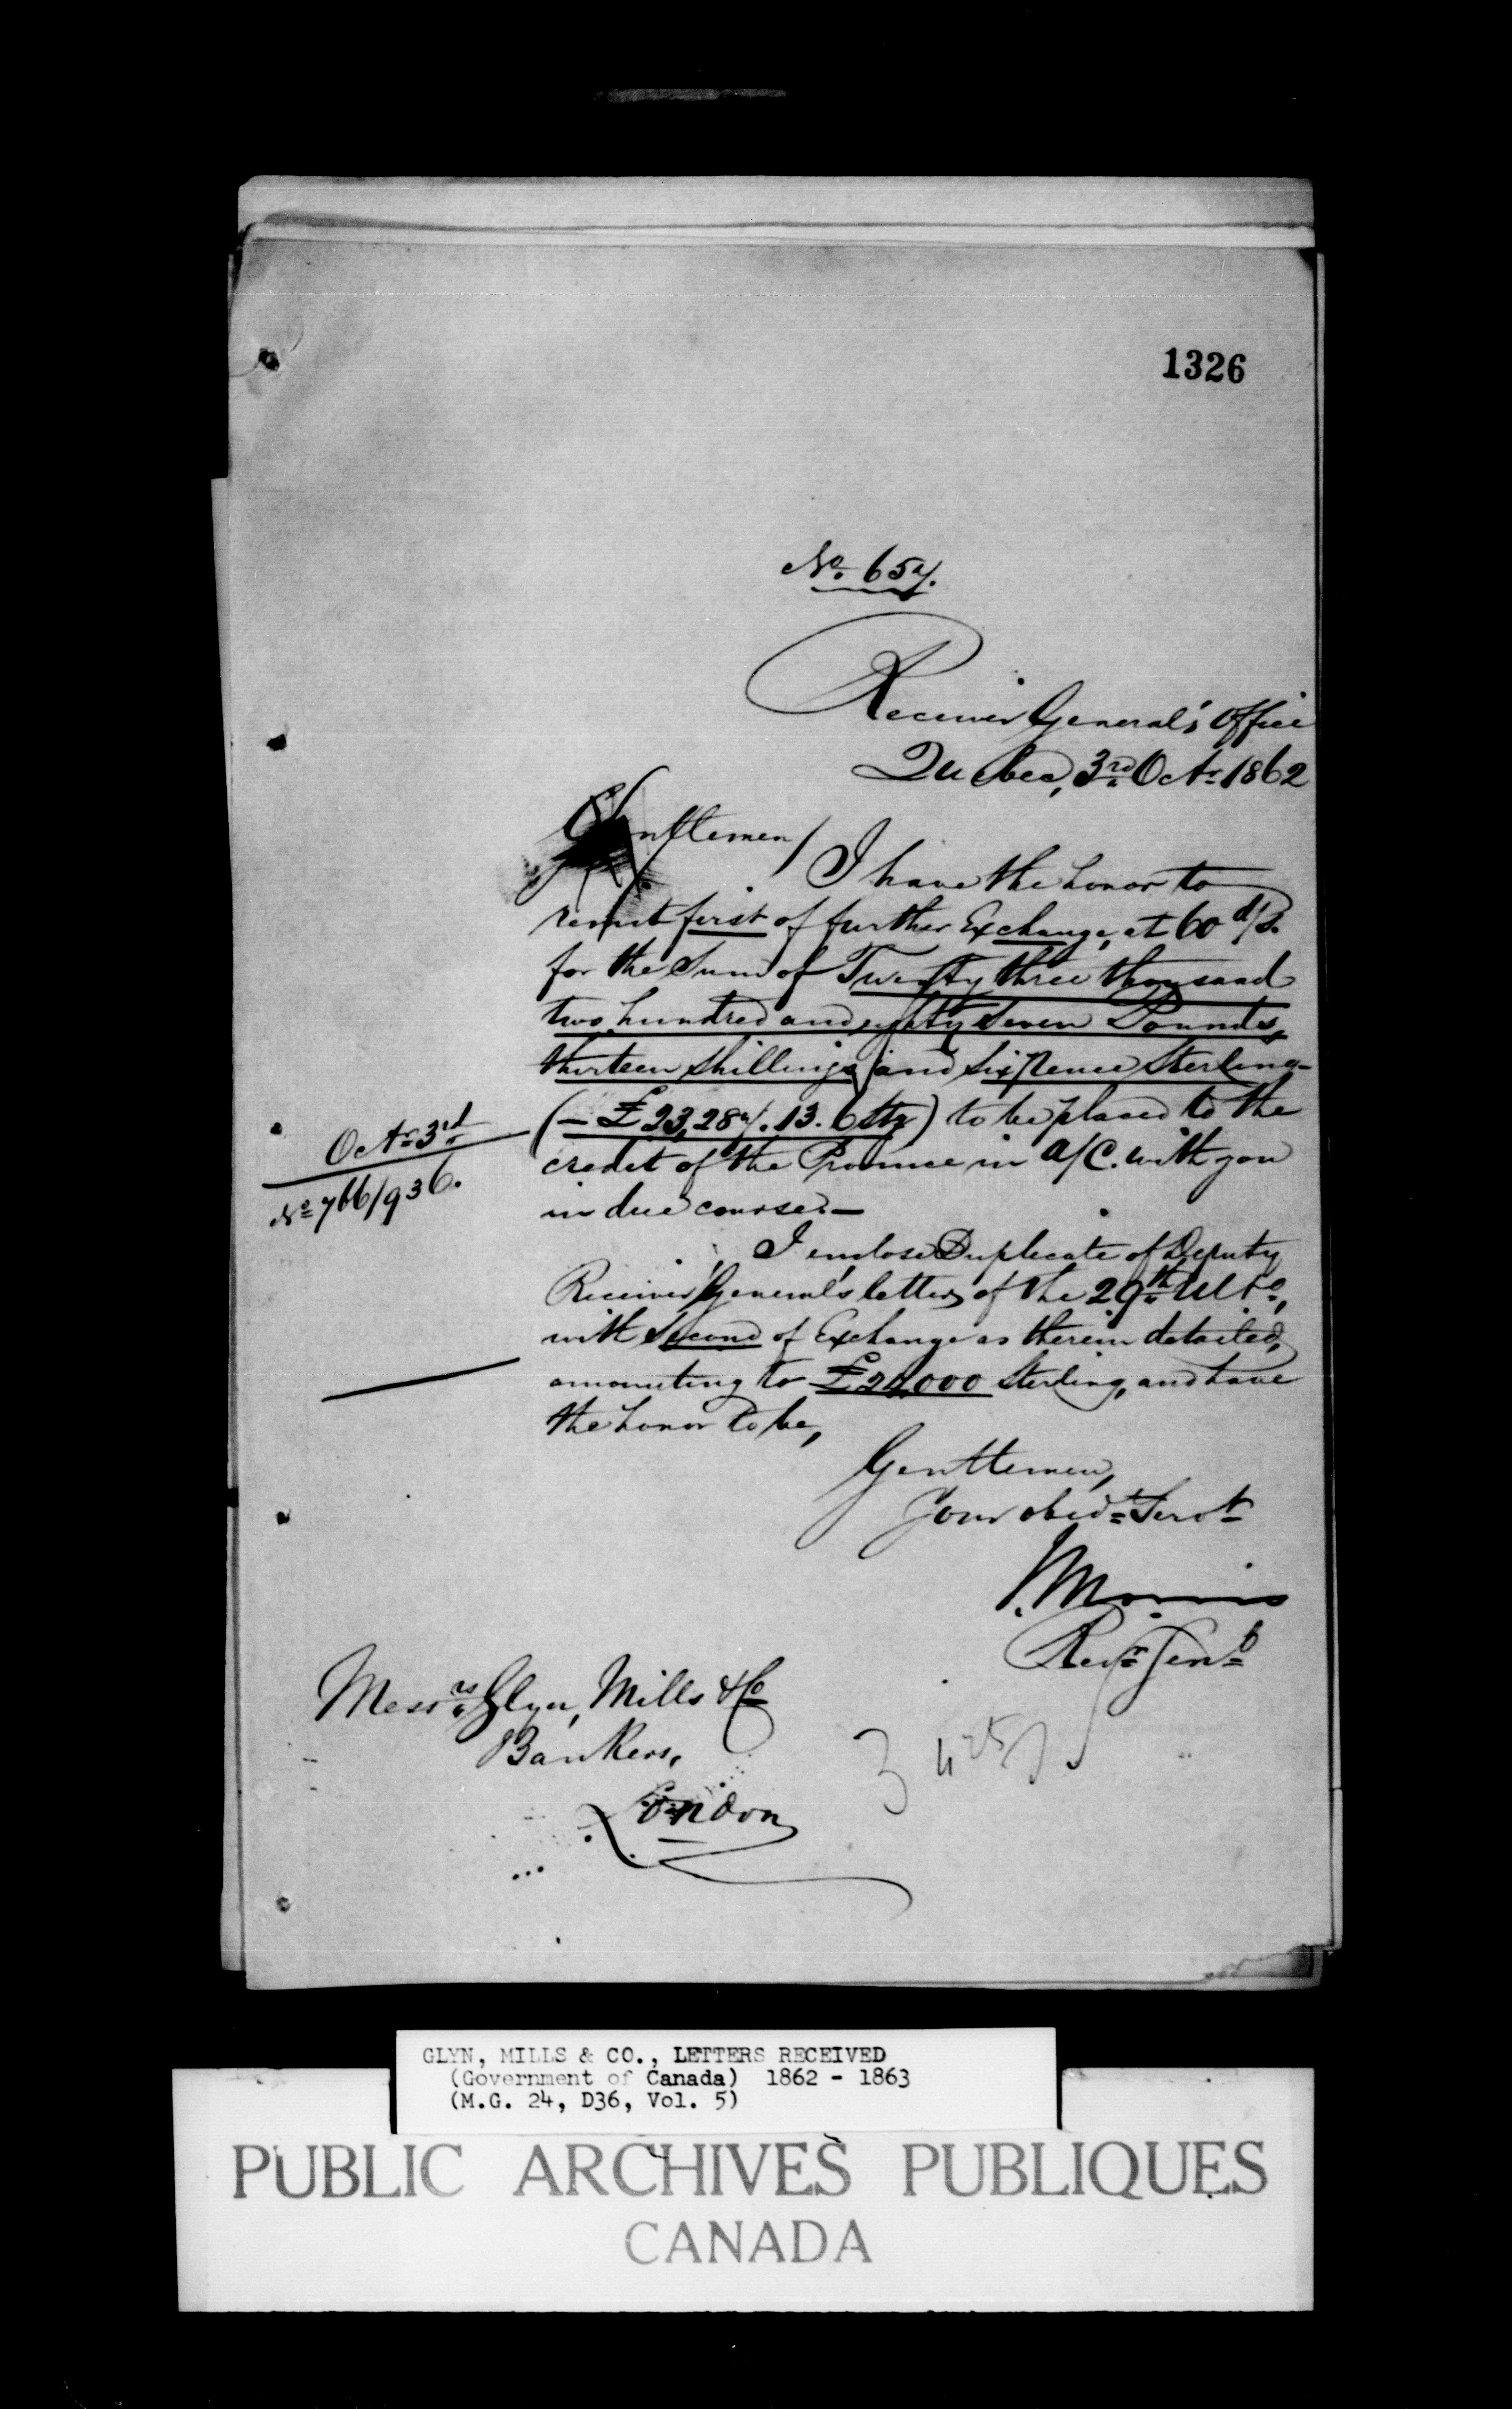 1326
No. 657.
Receiver General's Office
Quebec, 3rd Octr 1862
Gentlemen/
I have the honor to
remit first of further Exchange, at 60 d/s.
for the Sum of Twenty three thousand
two hundred and eighty seven Pounds,
thirteen shillings and sixpence Sterling-
(- £23,287.13.6 Stg) to be placed to the
Octr 3rd
No 766/936.
credit of the Province in a/C. with you
in due course.-
I enclose Duplicate of Deputy
Receiver General's letter, of the 29th Ulto,
with Second of Exchange as therein detailed,
amounting to Sterling, and have
the honor to be,
Gentlemen,
Your obedt Servt
J. Morris
Recr Genl
Messrs Glyn, Mills & Co
Bankers,
London
GLYN, MILLS & CO., LETTERS RECEIVED
(Government of Canada) 1862 - 1863
(M.G. 24, D36, Vol. 5)
PUBLIC ARCHIVES PUBLIQUES
CANADA